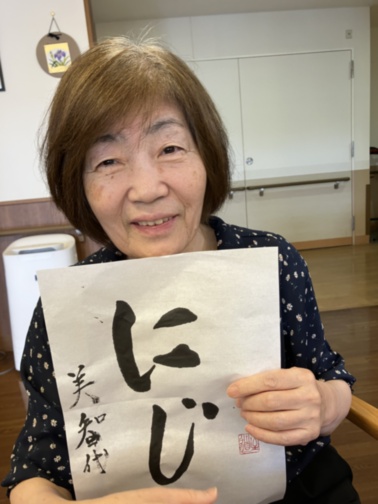 にじ
美智代